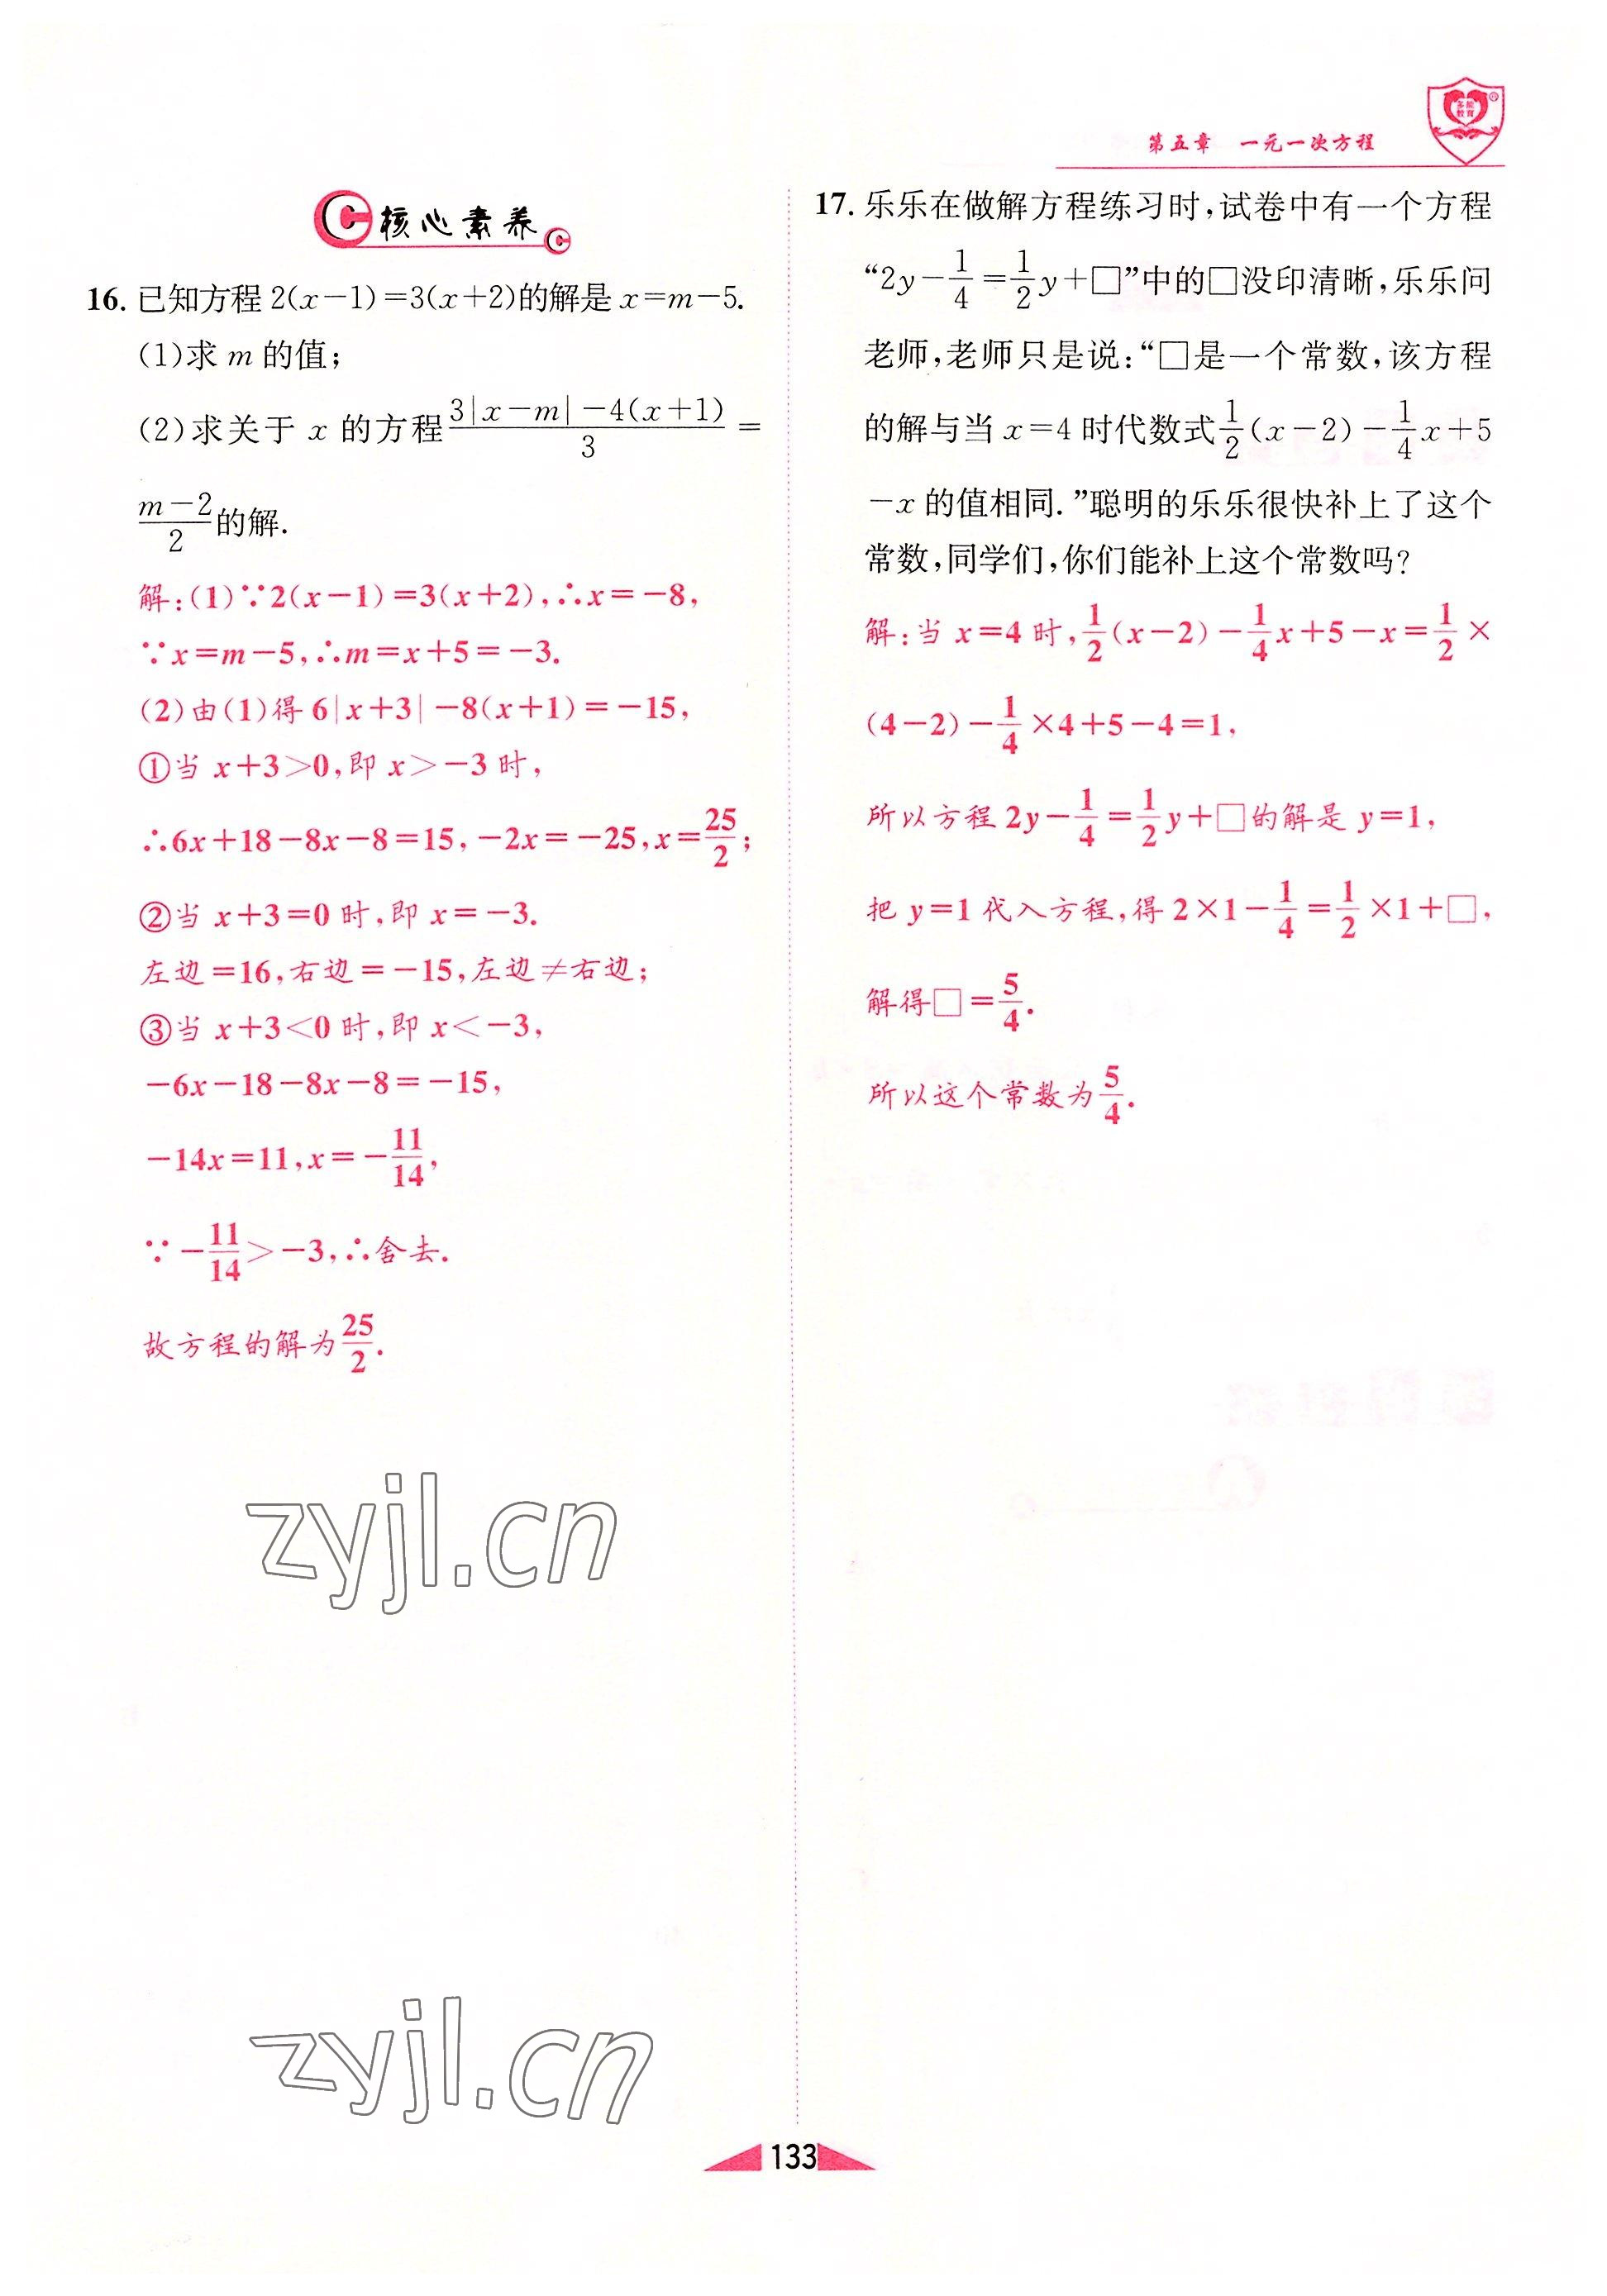 第五章 一元一次方程
C核心素养C
16. 已知方程 2(x-1)=3(x+2)的解是 x=m-5.
(1)求 m 的值;
(2)求关于 x 的方程\frac{3|x-m|-4(x+1)}{3}=
\frac{m-2}{2}的解.
解:(1)∵2(x-1)=3(x+2),∴x=-8,
∵x=m-5,∴m=x+5=-3.
(2)由(1)得 6|x+3|-8(x+1)=-15,
①当 x+3>0,即 x>-3 时,
∴6x+18-8x-8=15,-2x=-25,x=\frac{25}{2};
②当 x+3=0 时,即 x=-3.
左边=16,右边=-15,左边≠右边;
③当 x+3<0 时,即 x<-3,
-6x-18-8x-8=-15,
-14x=11,x=-\frac{11}{14},
∵-\frac{11}{14}>-3,∴舍去.
故方程的解为\frac{25}{2}.
zyjl.cn
zyjl.cn
17. 乐乐在做解方程练习时,试卷中有一个方程
“2y-\frac{1}{4}=\frac{1}{2}y+□”中的□没印清晰,乐乐问
老师,老师只是说:“□是一个常数,该方程
的解与当 x=4 时代数式\frac{1}{2}(x-2)-\frac{1}{4}x+5
-x 的值相同.”聪明的乐乐很快补上了这个
常数,同学们,你们能补上这个常数吗?
解:当 x=4 时,\frac{1}{2}(x-2)-\frac{1}{4}x+5-x=\frac{1}{2}×
(4-2)-\frac{1}{4}×4+5-4=1,
所以方程 2y-\frac{1}{4}=\frac{1}{2}y+□的解是 y=1,
把 y=1 代入方程,得 2×1-\frac{1}{4}=\frac{1}{2}×1+□,
解得□=\frac{5}{4}.
所以这个常数为\frac{5}{4}.
133